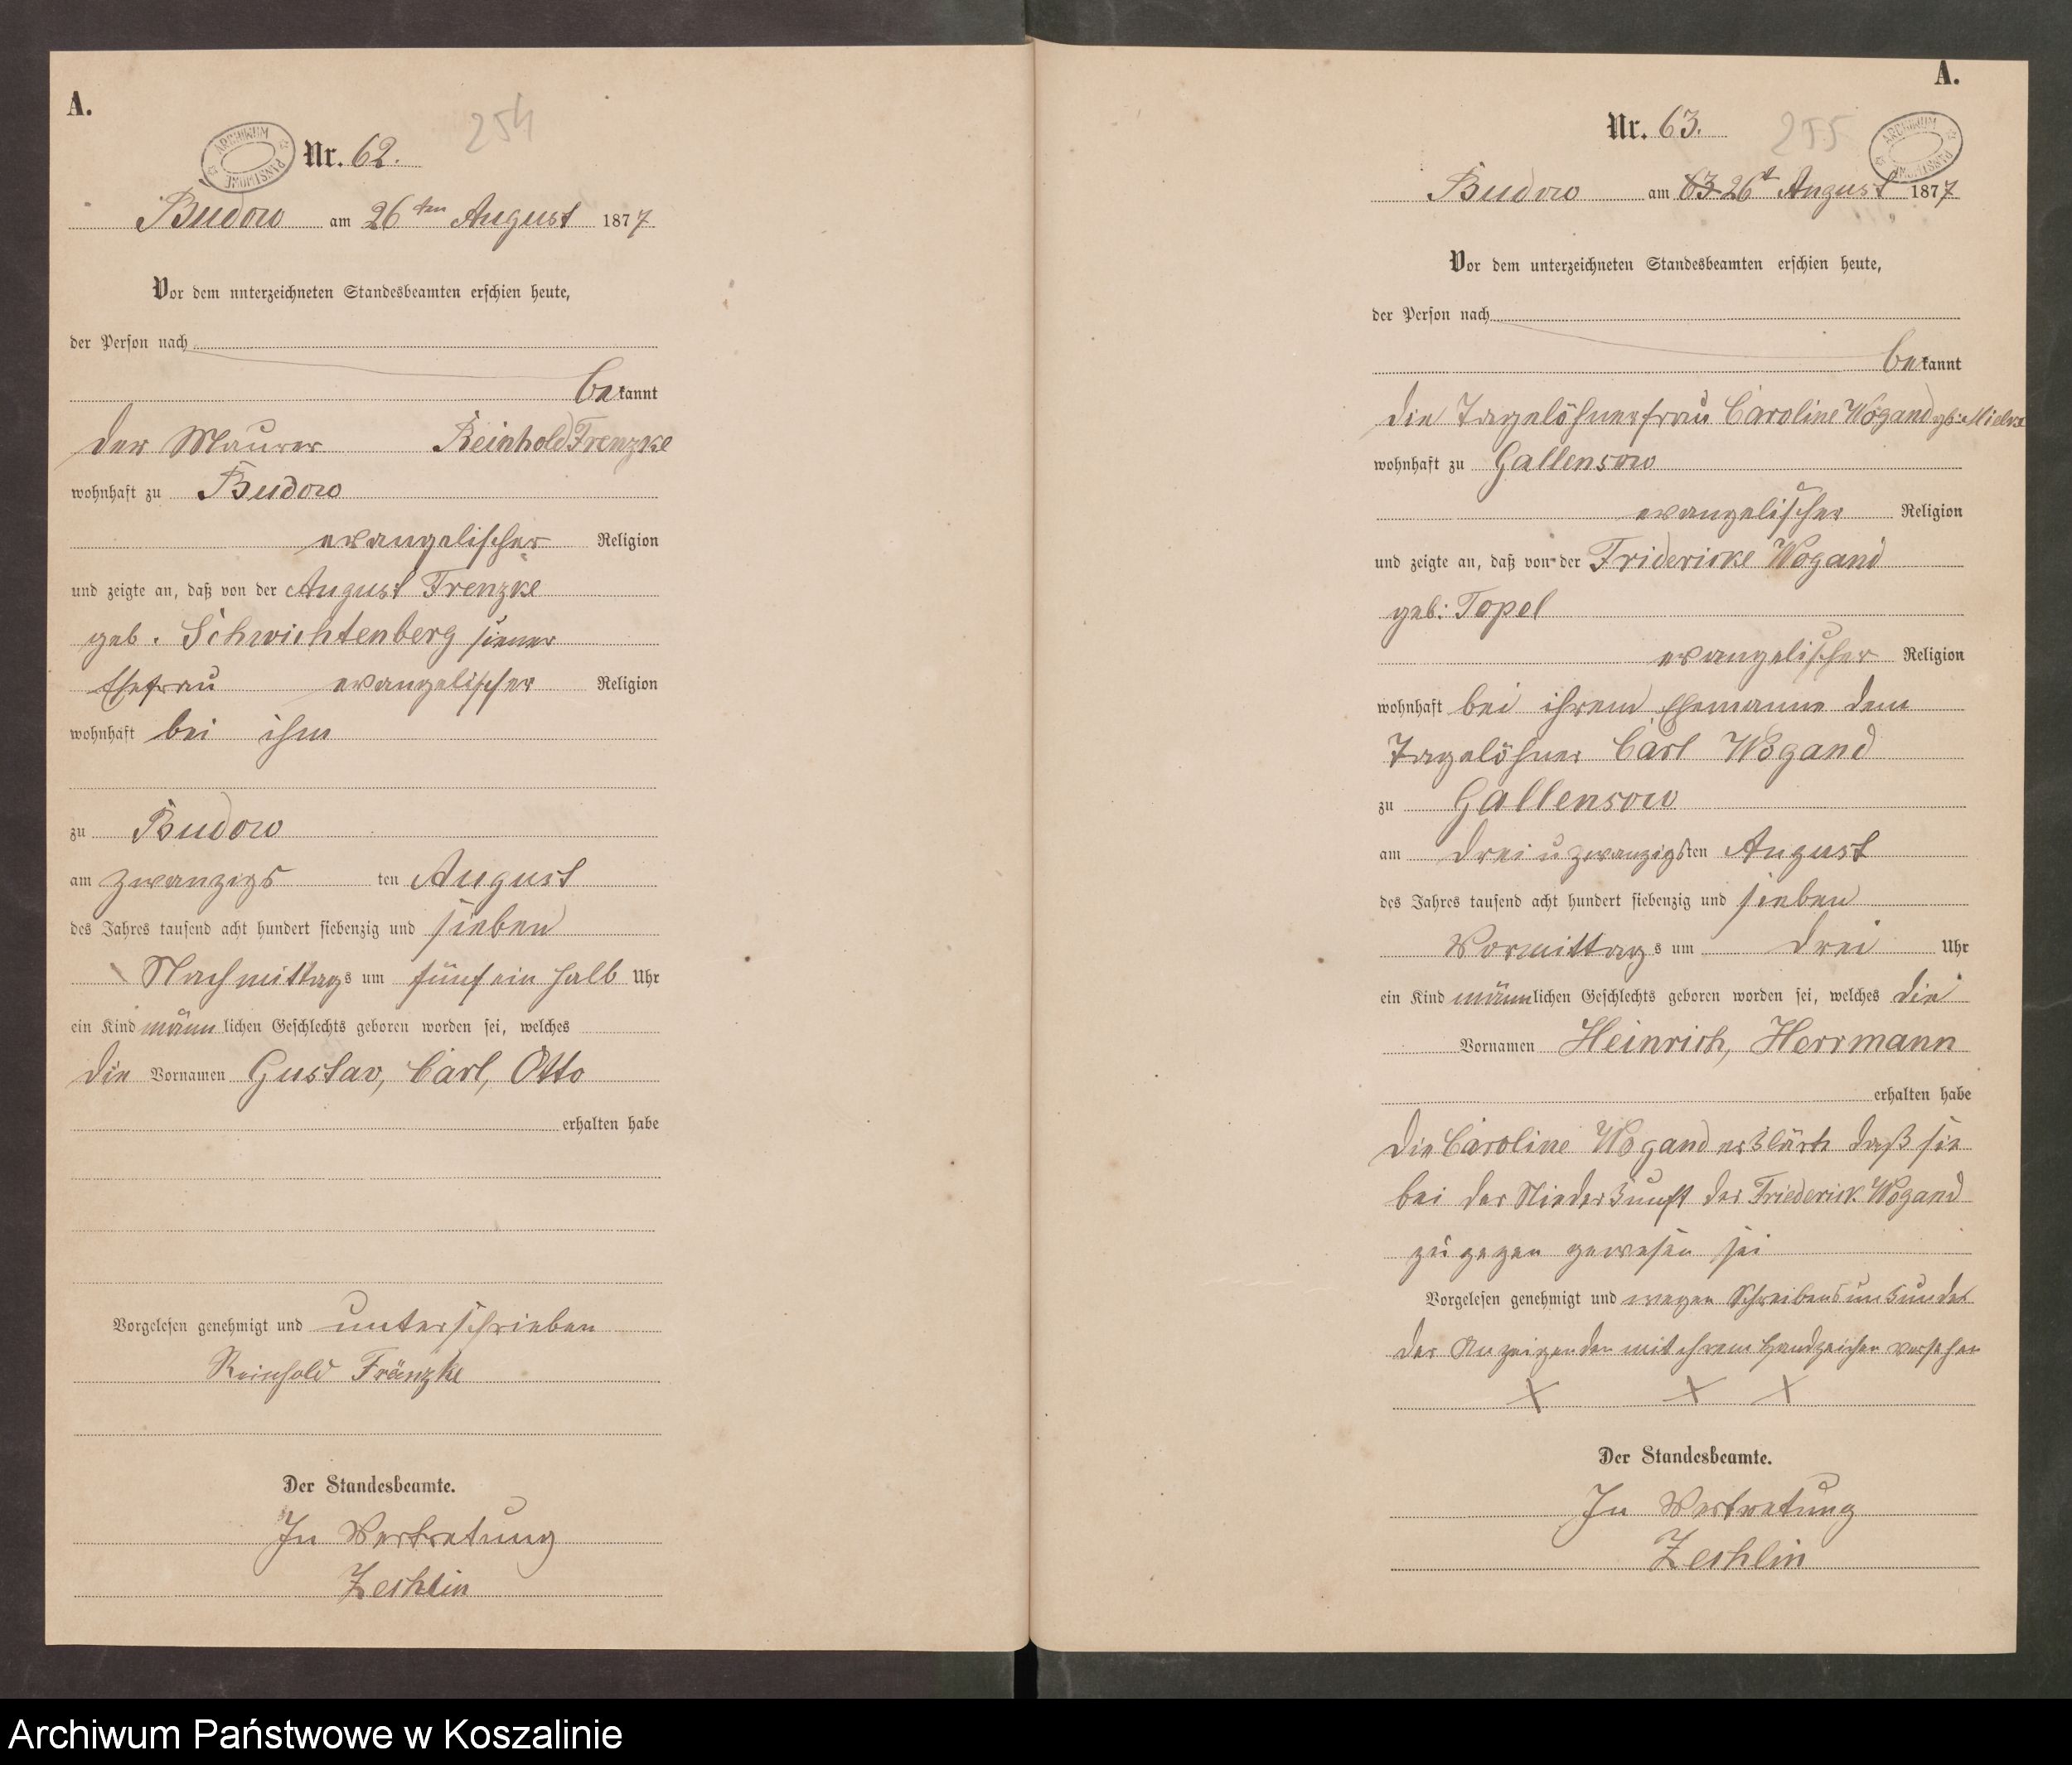 A.
ARCHIWUM PAŃSTWOWE
254
Nr. 62.
Budow am 26ten August 1877
Vor dem unterzeichneten Standesbeamten erschien heute,
der Person nach
bekannt
der Maurer Reinhold Frenzke
wohnhaft zu Budow
evangelischer Religion
und zeigte an, daß von der August Frenzke
geb. Schwichtenberg seiner
Ehefrau evangelischer Religion
wohnhaft bei ihm
zu Budow
am zwanzigs ten August
des Jahres tausend acht hundert siebenzig und sieben
Nachmittags um fünf ein halb Uhr
ein Kind männlichen Geschlechts geboren worden sei, welches
die Vornamen Gustav, Carl, Otto
erhalten habe
Vorgelesen genehmigt und unterschrieben
Reinhold Fränzke
Der Standesbeamte.
In Vertretung
Zechlin
A.
Nr. 63.
255
ARCHIWUM PAŃSTWOWE
Budow am 63 26t August 1877
Vor dem unterzeichneten Standesbeamten erschien heute,
der Person nach
bekannt
die Tagelöhnerfrau Caroline Wogand geb:
wohnhaft zu Gallensow
evangelischer Religion
und zeigte an, daß von der Fridericke Wogand
geb: Topel
evangelischer Religion
wohnhaft bei ihrem Ehemanne dem
Tagelöhner Carl Wogand
zu Gallensow
am drei u zwanzigsten August
des Jahres tausend acht hundert siebenzig und sieben
Vormittags um drei Uhr
ein Kind männlichen Geschlechts geboren worden sei, welches die
Vornamen Heinrich, Herrmann
erhalten habe
Die Caroline Wogand erklärte daß sie
bei der Niederkunft der Friederick Wogand
zu gegen gewesen sei
Vorgelesen genehmigt und wegen Schreibensunkunde
der Anzeigenden mit ihrem Handzeichen versehen
X X X
Der Standesbeamte.
In Vertretung
Zechlin
Archiwum Państwowe w Koszalinie